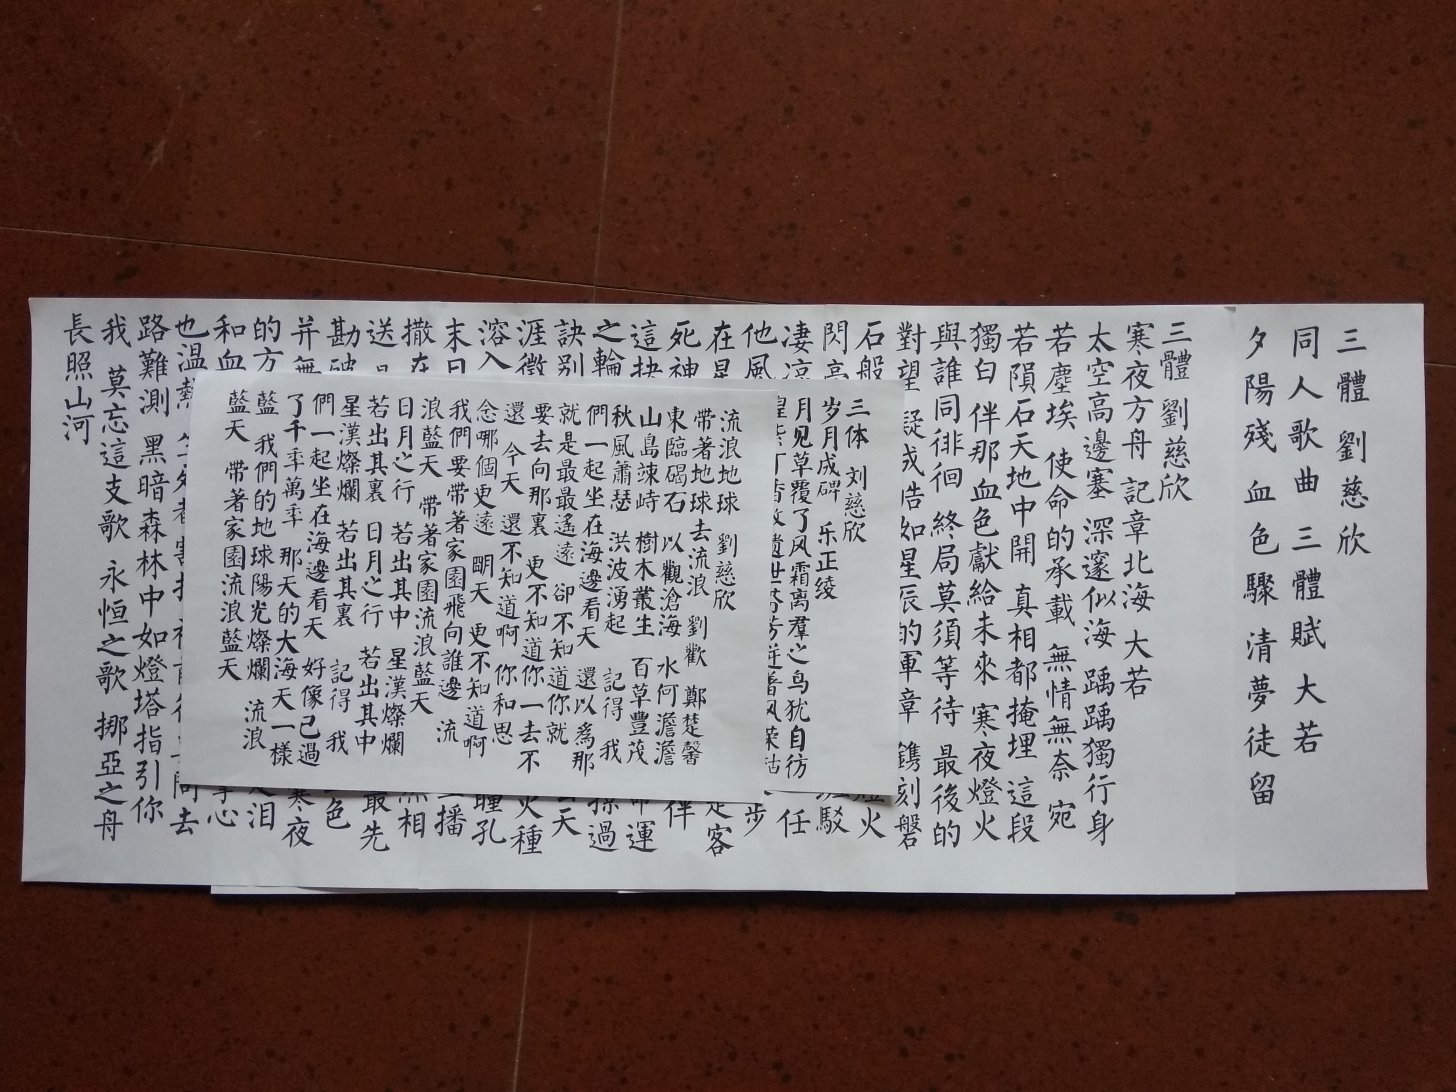 三體 劉慈欣
同人歌曲 三體賦 大若
夕陽殘 血色驟 清夢徒留
三體 劉慈欣
寒夜方舟 記章北海 大若
太空高邊塞 深邃似海 踽踽獨行身
若塵埃 使命的承載 無情無奈 宛
若隕石天地中開 真相都掩埋 這段
獨白 伴那血色獻給未來 寒夜燈火
與誰同徘徊 終局莫須等待 最後的
對望 凝成浩如星辰的軍章 鐫刻磐
石般 火
閃 駁
凄涼 任
他風 步
在星 是客
死神 伴
這抉 運
之輪 過
訣别 天
涯微 火種
溶入 瞳孔
末日 播
撒在 相
送 最先
勘破 色
并無 寒夜
的方 淚
和血 心
也溫熱 去
路難測 黑暗森林中如燈塔指引你
我 莫忘這支歌 永恒之歌 挪亞之舟
長照山河
三体 刘慈欣
岁月成碑 乐正绫
月见草覆了风霜离羣之鸟犹自彷
流浪地球 劉慈欣
帶著地球去流浪 劉歡 鄭楚馨
東臨碣石 以觀滄海 水何澹澹
山島竦峙 樹木叢生 百草豐茂
秋風蕭瑟 洪波湧起 記得 我
們一起坐在海邊看天 還以爲那
就是最最遙遠 卻不知道你就
要去向那裏 更不知道你一去不
還 今天 還不知道啊 你和思
念哪個更遠 明天 更不知道啊
我們要帶著家園飛向誰邊 流
浪藍天 帶著家園流浪藍天
日月之行 若出其中 星漢燦爛
若出其裏 日月之行 若出其中
星漢燦爛 若出其裏 記得 我
們一起坐在海邊看天 好像已過
了千年萬年 那天的大海天一樣
藍 我們的地球陽光燦爛 流浪
藍天 帶著家園流浪藍天